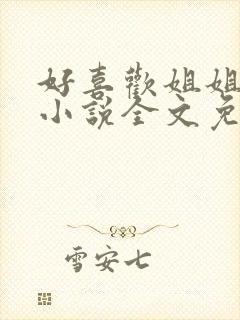 好喜歡姐姐
小説全文免
雪安七